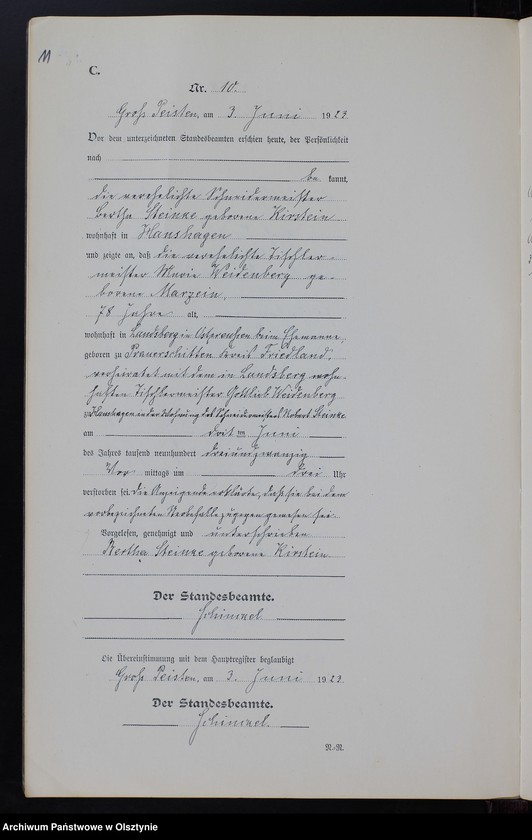 11
C.
Nr. 10.
Groß Peisten, am 3. Juni 1923.
Vor dem unterzeichneten Standesbeamten erschien heute, der Persönlichkeit
nach
be kannt,
die verehelichte Schneidermeister
Bertha Steinke geborene Kirstein
wohnhaft in Hanshagen
und zeigte an, daß die verehelichte Tischler-
meister Marie Weidenberg ge-
borene Marzein,
78 Jahre alt,
wohnhaft in Landsberg in Ostpreußen beim Ehemanne,
geboren zu Prauerschitten Kreis Friedland,
verheiratet mit dem in Landsberg wohn-
haften Tischlermeister Gottlieb Weidenberg
zu Hanshagen in der Wohnung des Schneidermeisters Robert Steinke
am dritten Juni
des Jahres tausend neunhundert dreiundzwanzig
Vor mittags um drei Uhr
verstorben sei. Die Anzeigende erklärte, daß sie bei dem
vorbezeichneten Sterbefalle zugegen gewesen sei.
Vorgelesen, genehmigt und unterschrieben
Bertha Steinke geborene Kirstein
Der Standesbeamte.
Schimmel
Die Übereinstimmung mit dem Hauptregister beglaubigt
Groß Peisten, am 3. Juni 1923.
Der Standesbeamte.
Schimmel.
N.-N.
Archiwum Państwowe w Olsztynie